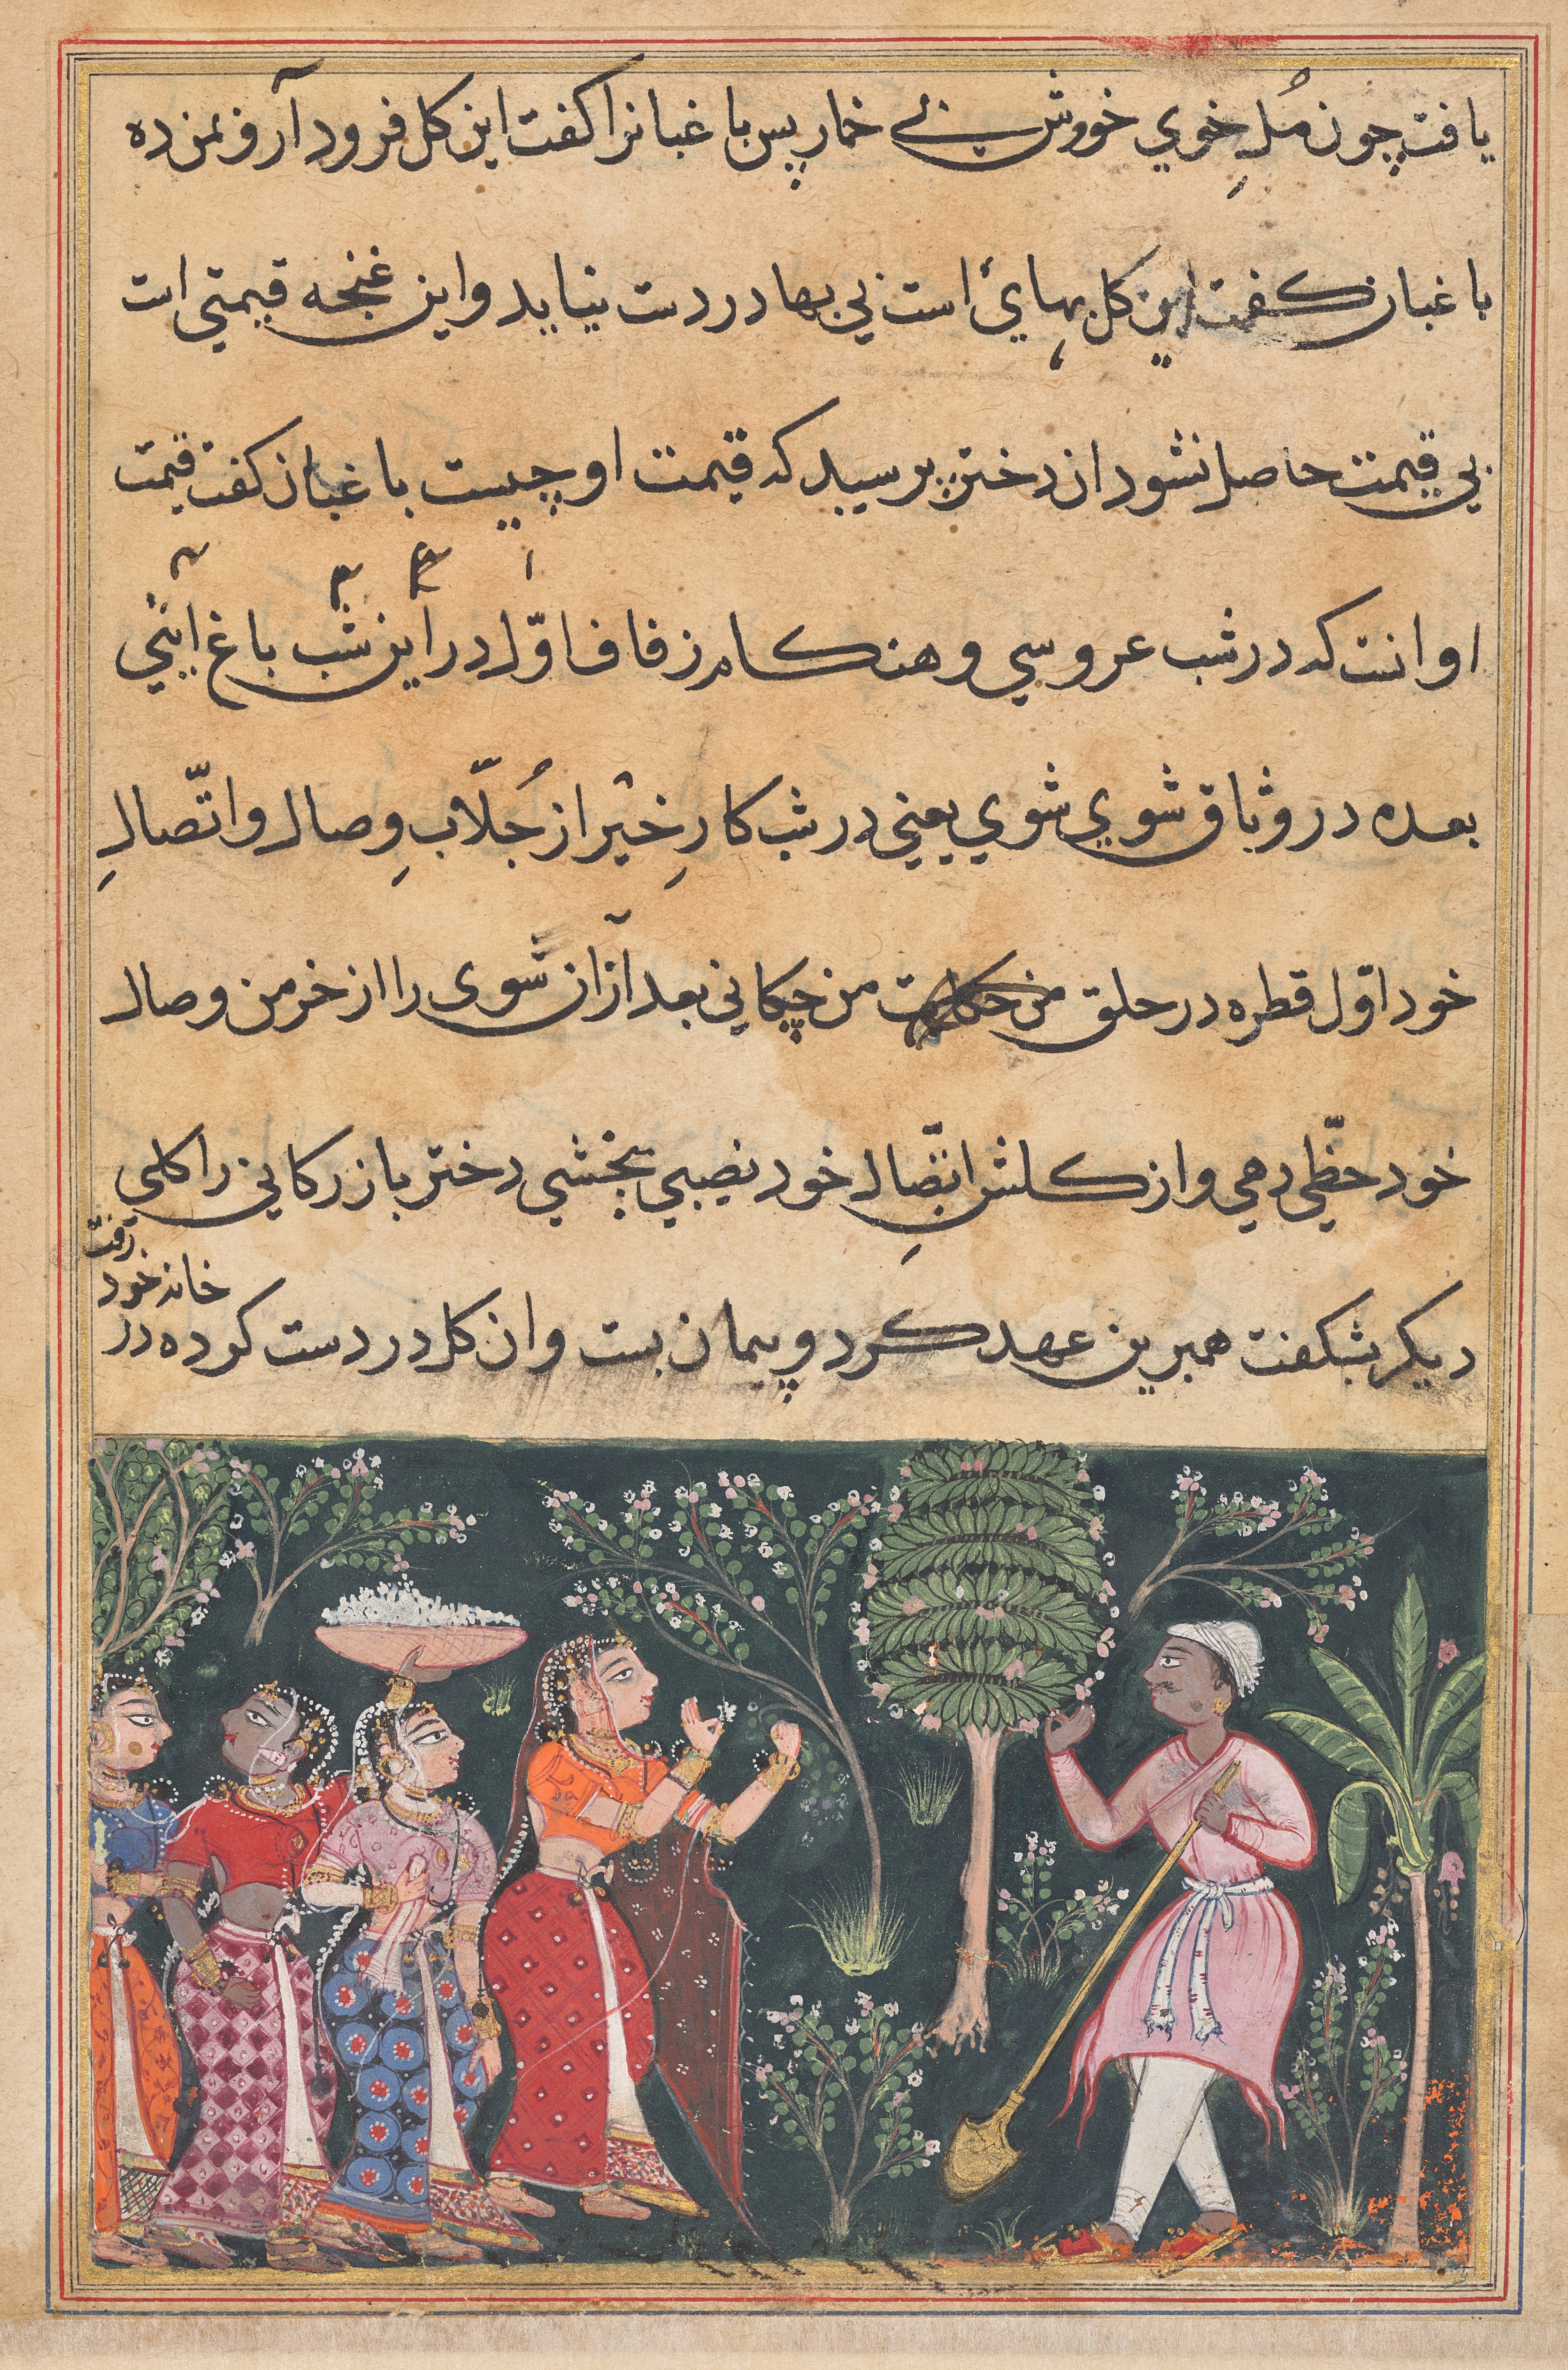 یافت چون مُلِ خوي خووش بے خمار پس باغبانرا کفت این کل فرود آر و بمن ده
باغبان کفت این کل بهایٔ است بي بها در دست نیاید و این غنجه قیمتي است
بي قیمت حاصل نشود از دختر پرسید که قیمت او چیست باغبان کفت قیمت
او انست که در شب عروسي و هنکام زفاف اوّل در این شب باغ آیي
بعده در وثاق شوي شوي یعني در شب کارِ خیر از جُلّابِ وصال و اتّصالِ
خود اوّل قطره در حلق من چکاني بعد ازان شوی را از خرمن وصال
خود حظّي دهي و از کلشن اتّصالِ خود نصیبي بخشي دختر بازرکاني را کلي
دیکر بشکفت همبرین عهد کرد و پیمان بست وان کل در دست کرده در
خانه خود
رفت